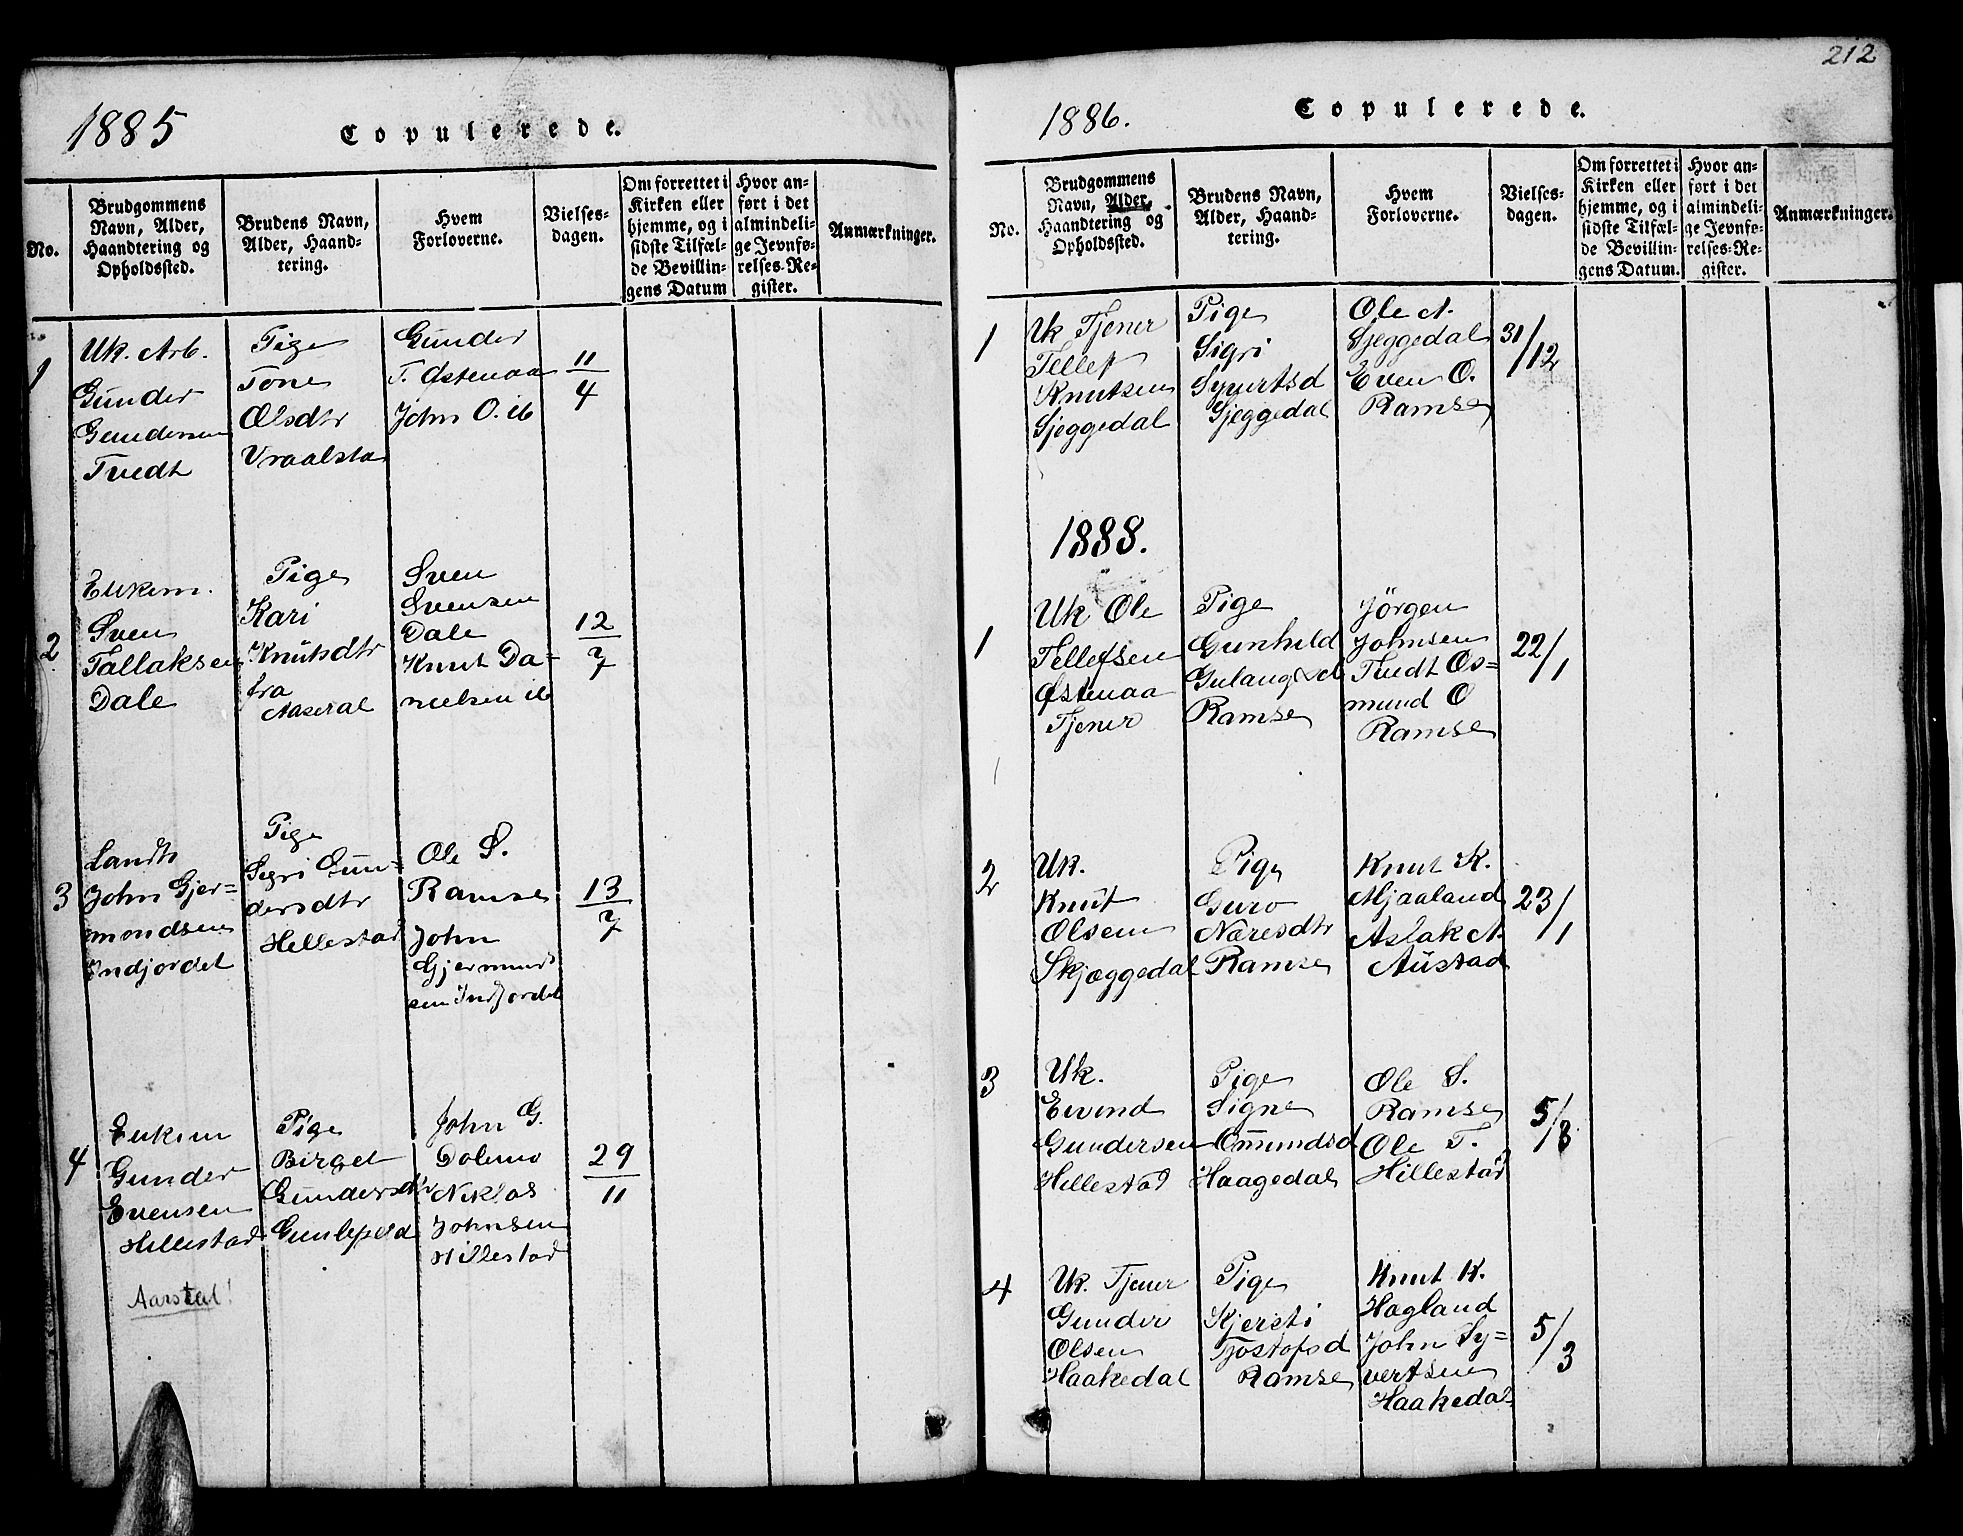 1885
Copulerede.
No.
Brudgommens
Navn, Alder,
Haandtering og
Opholdssted.
Brudens Navn,
Alder, Haand-
tering.
Hvem
Forloverne.
Vielses-
dagen.
Om forrettet i
Kirken eller
hjemme, og i
sidste Tilfæl-
de Bevillin-
gens Datum
Hvor an-
ført i det
almindeli-
ge Jevnfø-
relses-Re-
gister.
Anmærkninger.
1
Uk. Arb.
Gunder
Gundersen
Tvedt
Pige
Tone
Olsdtr
Vraalstad
Gunder
T. Østenaa
John O. ib
11
4
2
Enkem.
Sven
Tallaksen
Dale
Pige
Kari
Knutsdtr
fra
Aaseral
Sven
Svensen
Dale
Knut Da-
nielsen ib
12
7
3
Landh
John Gjer-
mondsen
Indjordet
Pige
Sigri Gun-
dersdtr
Hillestad
Ole S.
Ramse
John
Gjermund
sen Indjordet
13
7
4
Enkem
Gunder
Evensen
Hillestad
Pige
Birget
Gundersdtr
John G.
Dolemo
Niklas
Johnsen
Hillestad
29
11
Aarstal!
212
1886.
Copulerede.
No.
Brudgommens
Navn, Alder,
Haandtering og
Opholdssted.
Brudens Navn,
Alder, Haand-
tering.
Hvem
Forloverne.
Vielses-
dagen.
Om forrettet i
Kirken eller
hjemme, og i
sidste Tilfæl-
de Bevillin-
gens Datum.
Hvor an-
ført i det
almindeli-
ge Jevnfø-
relses-Re-
gister.
Anmærkninger.
1
Uk Tjener
Tellef
Knutsen
Sjeggedal
Pige
Sigri
Syvertsd
Sjeggedal
Ole A.
Sjeggedal
Even O.
Ramse
31/12
1888.
1
Uk Ole
Tellefsen
Østenaa
Tjener
Pige
Gunhild
Ramse
Jörgen
Johnsen
Tvedt Os-
mund O
Ramse
22/1
2
Uk.
Knut
Olsen
Skjæggedal
Pige
Guro
Næresdtr
Ramse
Knut K.
Mjaaland
Aslak A.
Austad
23/1
3
Uk.
Eivind
Gundersen
Hillestad
Pige
Signe
Ommundsd
Haagedal
Ole S.
Ramse
Ole T.
Hillestad
5/8
4
Uk. Tjener
Gunder
Olsen
Haakedal
Pige
Kjersti
Tjostofsd
Ramse
Knut K.
Hagland
John Sy-
vertsen
Haakedal
5/3